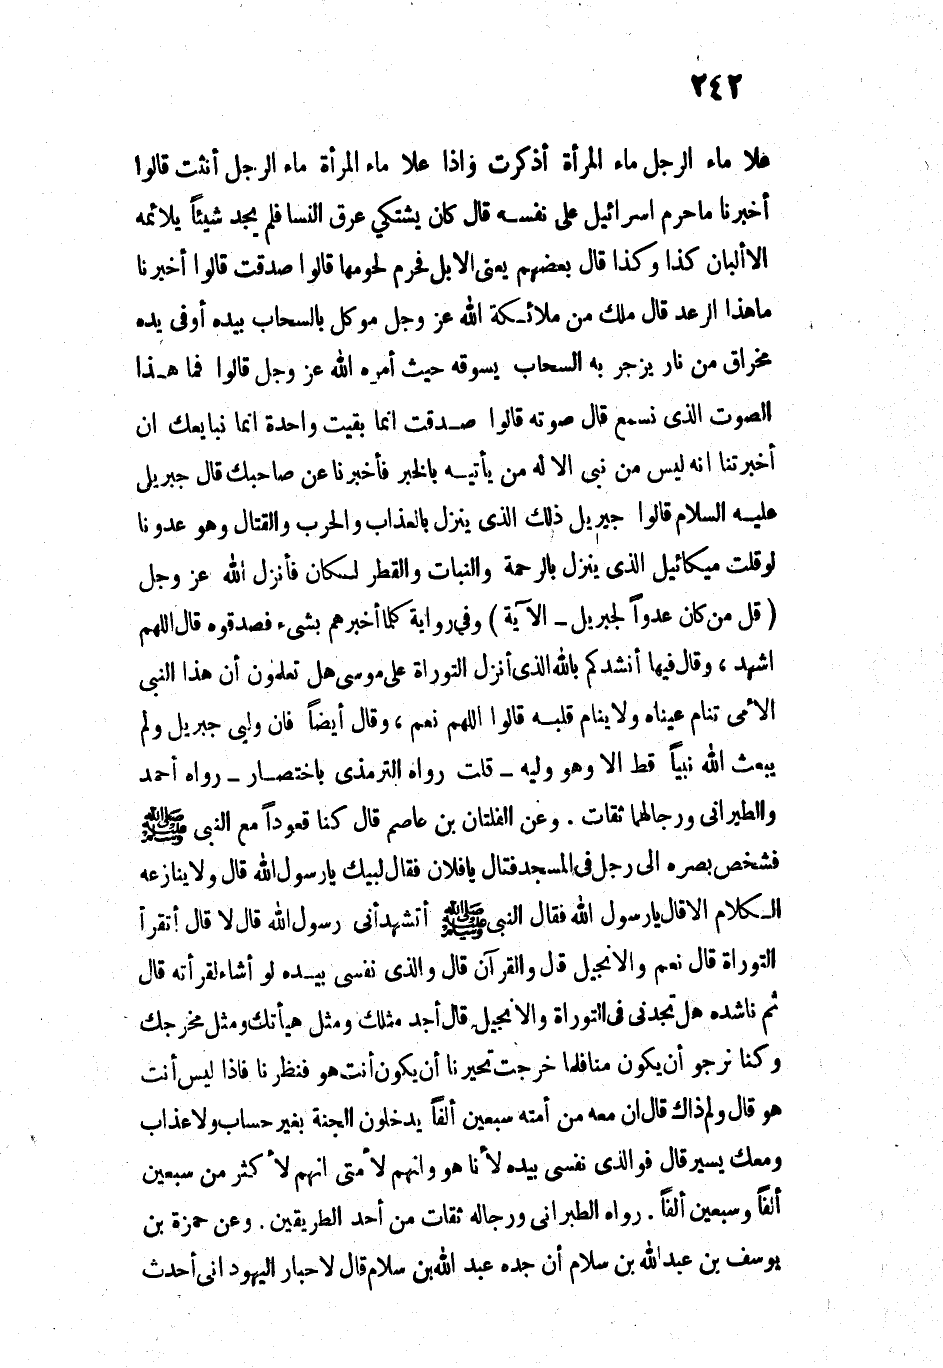 ٢٤٢
علا ماء الرجل ماء المرأة أذكرت واذا علا ماء المرأة ماء الرجل أنثت قالوا
أخبرنا ماحرم اسرائيل على نفسه قال كان يشتكي عرق النسا فلم يجد شيئاً يلائمه
الا ألبان كذا وكذا قال بعضهم يعني الابل فحرم لحومها قالوا صدقت قالوا أخبرنا
ماهذا الرعد قال ملك من ملائكة الله عز وجل موكل بالسحاب بيده أو في يده
مخراق من نار يزجر به السحاب يسوقه حيث أمره الله عز وجل قالوا فما هذا
الصوت الذى نسمع قال صوته قالوا صدقت انما بقيت واحدة انما نبايعك ان
أخبرتنا انه ليس من نبى الا له من يأتيه بالخبر فأخبرنا عن صاحبك قال جبريل
عليه السلام قالوا جبريل ذلك الذى ينزل بالعذاب والحرب والقتال وهو عدونا
لوقلت ميكائيل الذى ينزل بالرحمة والنبات والقطر لكان فأنزل الله عز وجل
( قل من كان عدواً لجبريل ـ الآية ) وفي رواية كلما أخبرهم بشيء فصدقوه قال اللهم
اشهد ، وقال فيها أنشدكم بالله الذى أنزل التوراة على موسى هل تعلمون أن هذا النبى
الأمى تنام عيناه ولا ينام قلبه قالوا اللهم نعم ، وقال أيضاً فان وليي جبريل ولم
يبعث الله نبياً قط الا وهو وليه ـ قلت رواه الترمذى باختصار ـ رواه أحمد
والطبرانى ورجالهما ثقات . وعن الفلتان بن عاصم قال كنا قعوداً مع النبى ﷺ
فشخص بصره الى رجل فى المسجد فقال يافلان فقال لبيك يارسول الله قال ولا ينازعه
الكلام الا قال يارسول الله فقال النبى ﷺ أتشهد أنى رسول الله قال لا قال أتقرأ
التوراة قال نعم والانجيل قال والقرآن قال والذى نفسى بيده لو أشاء لقرأته قال
ثم ناشده هل تجدنى فى التوراة والانجيل قال أجد مثلك ومثل هيأتك ومثل مخرجك
وكنا نرجو أن يكون منا فلما خرجت تحيرنا أن يكون أنت هو فنظرنا فاذا ليس أنت
هو قال ولم ذاك قال ان معه من أمته سبعين ألفاً يدخلون الجنة بغير حساب ولا عذاب
ومعك يسير قال فوالذى نفسى بيده لأنا هو وانهم لأمتى انهم لأكثر من سبعين
ألفاً وسبعين ألفاً . رواه الطبرانى ورجاله ثقات من أحد الطريقين . وعن حمزة بن
يوسف بن عبد الله بن سلام أن جده عبد الله بن سلام قال لاحبار اليهود انى أحدث